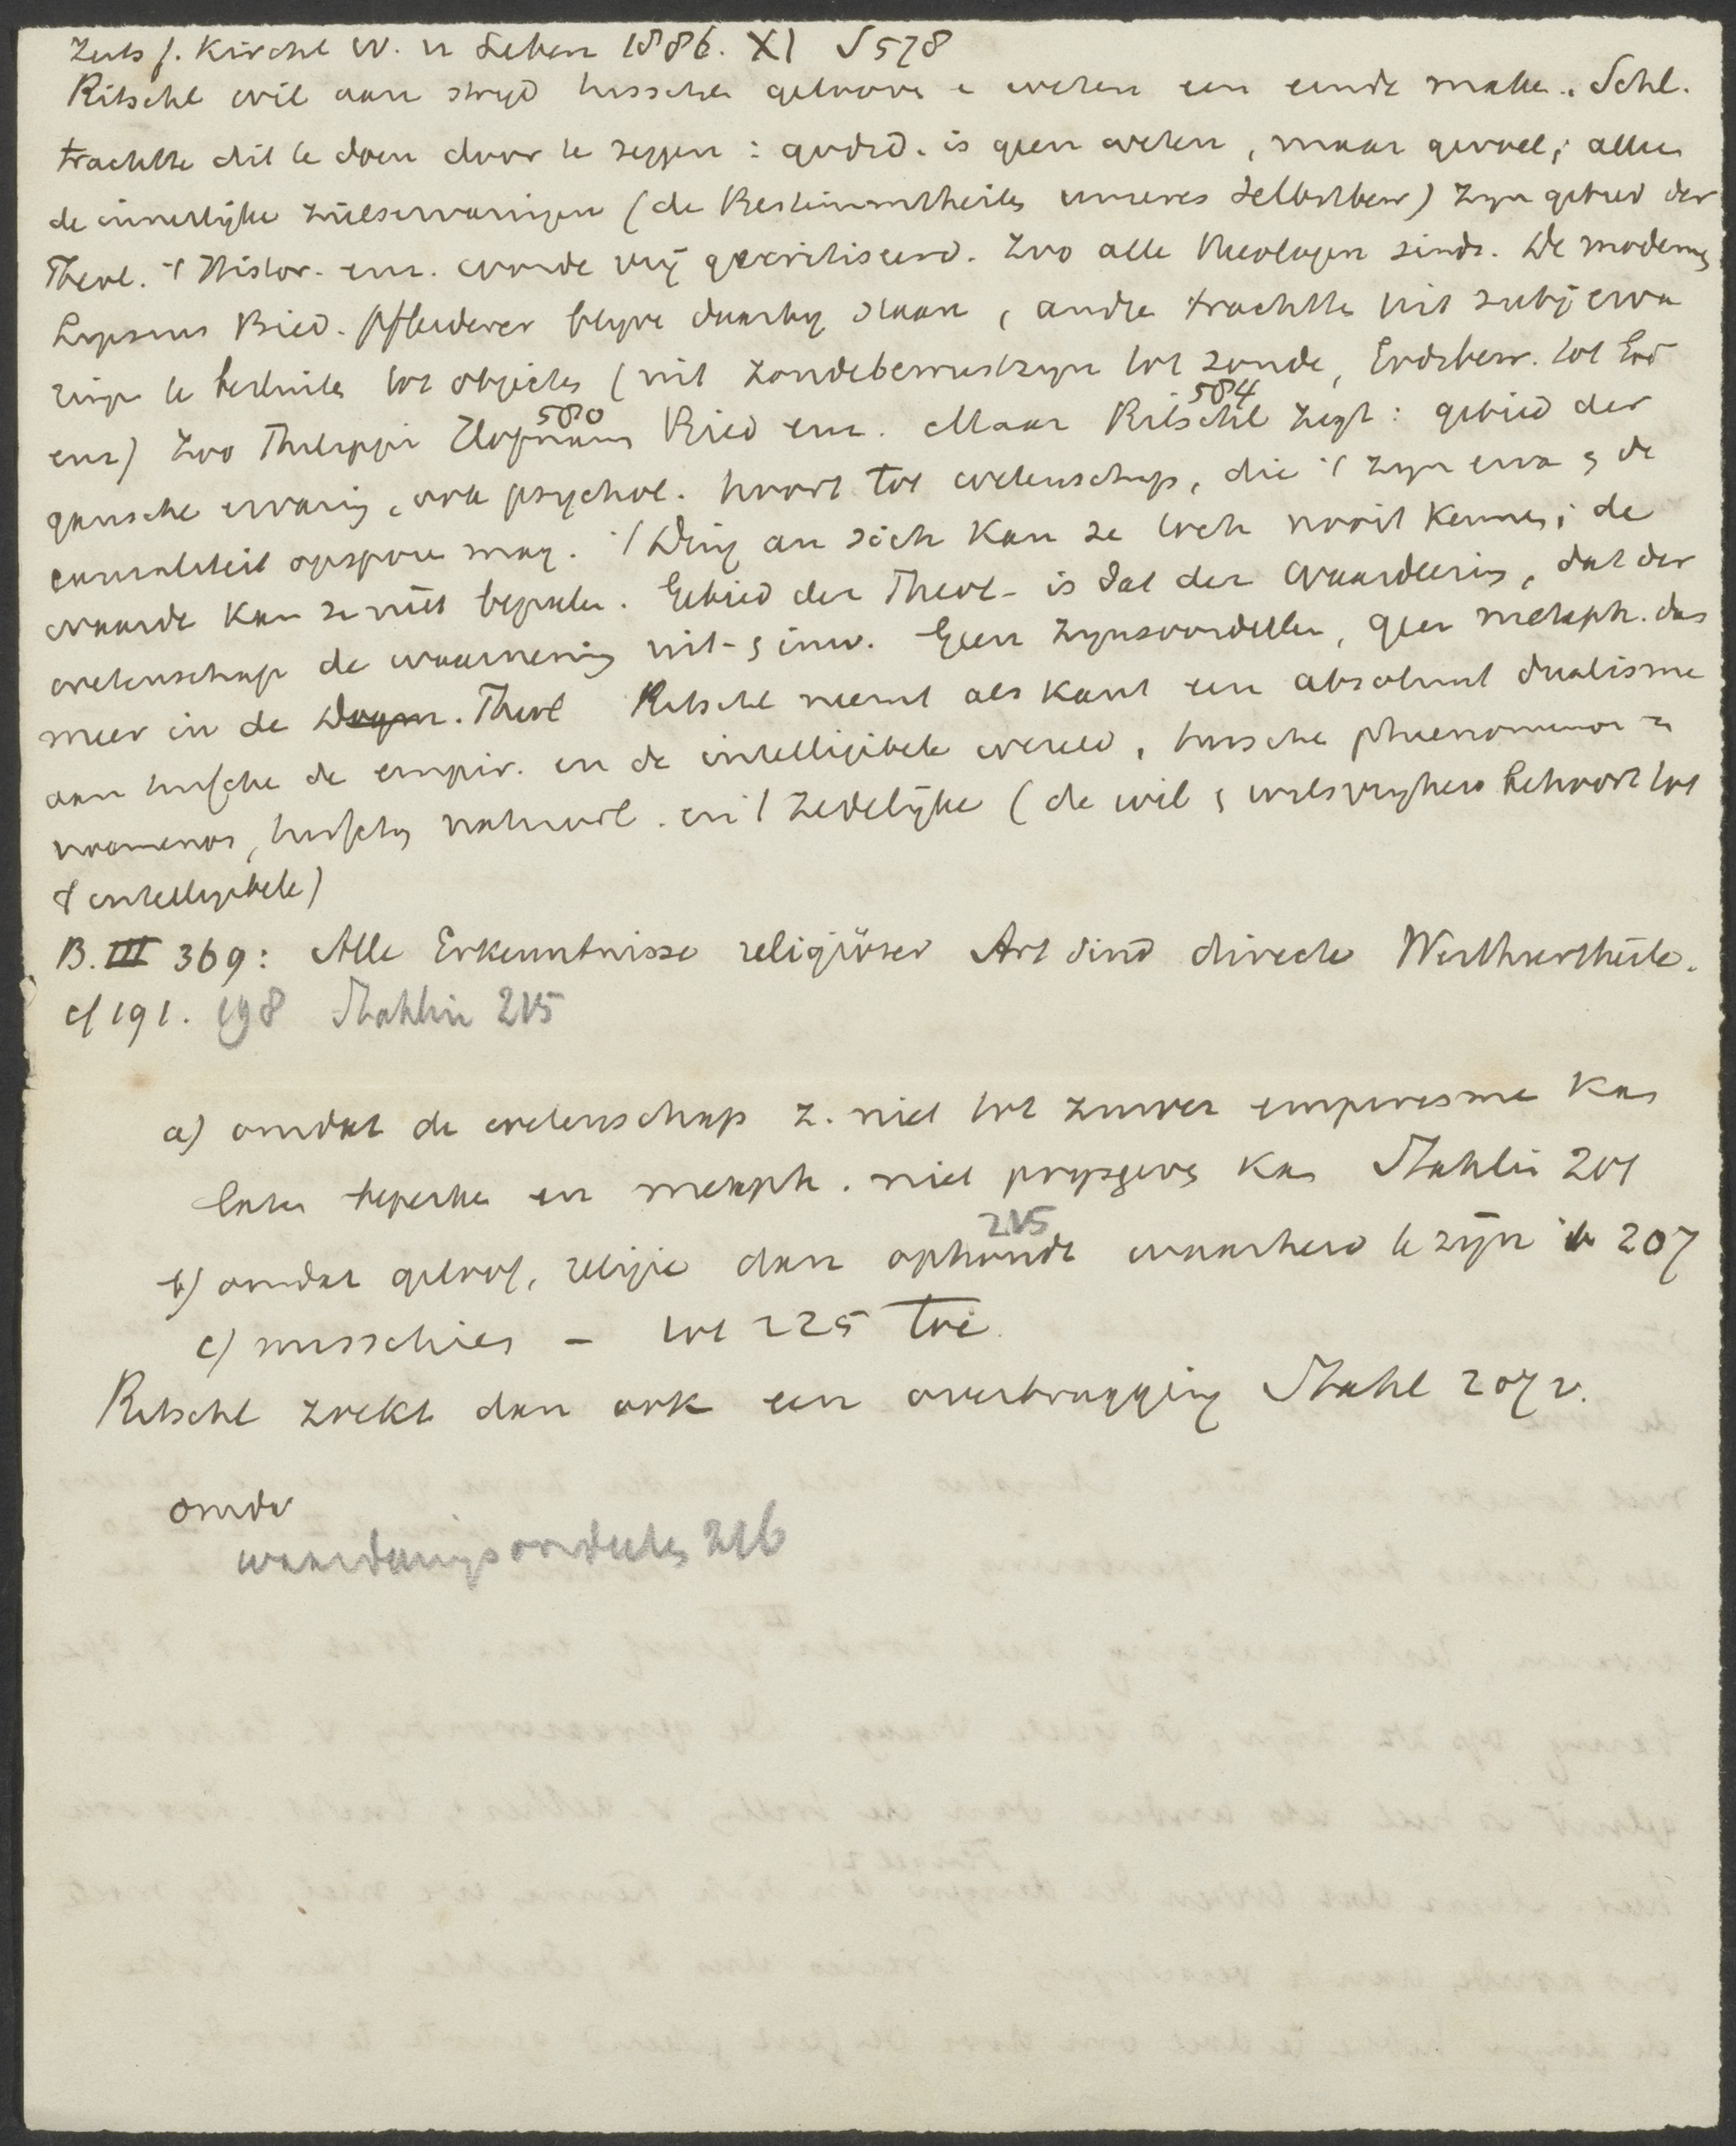 Zeits f. Kirchl W. u Leben 1886. XI S 578
Ritschl wil aan stryd tusschen geloove e weten een einde make. Schl.
trachtte dit te doen door te zeggen : godsd. is geen weten, maar gevoel; allee
de innerlijke zielservaringen (de Bestimmtheiten unseres Selbstbew) zyn gebied der
Theol. 't Histor. enz. worde vrij gecritiseerd. Zoo alle theologen sinds. De modernes
Lipsius Bied. Pfleiderer blyve daarby staan, andre trachtte uit subj erva
ringe te besluite tot objectes (uit zondebewustzyn tot zonde, Godsbew. tot God
enz) Zoo Philippi Hofmann 580 Bied enz. Maar Ritschl 584 zegt : gebied der
gansche ervaring, ook psychol. hoort tot wetenschap, die 't zyn erva & de
causaliteit opspore mag. 't Ding an sich kan ze toch nooit kennen; de
waarde kan ze niet bepale. Gebied der Theol - is dat der waardeering, dat der
wetenschap de waarneming uit- & inw. Geen zynsoordeelen, geen metaph. dus
meer in de Dogm. Theol Ritschl neemt als Kant een absoluut dualisme
aan tusschen de empir. en de intelligibele wereld, tusschen phaenomenon en
noumenon, tusschen natuurl. en 't zedelijke (de wil & wilsvryheid behoort tot
't intelligibele)
B. III 369: Alle Erkenntnisse religiöser Art sind directe Werthurtheile.
cf 191. 198 Stahlin 215
a) omdat de wetenschap z. niet tot zuiver empirisme kan
laten beperken en metaph. niet prysgeven kan Stahlin 201
b) omdat geloof, religie dan ophoudt 215 waarheid te zijn ib 207
c) misschien - tot 225 toe
Ritschl zoekt dan ook een overbrugging Stahl 207 v.
omda
waarderingsoordeelen 216